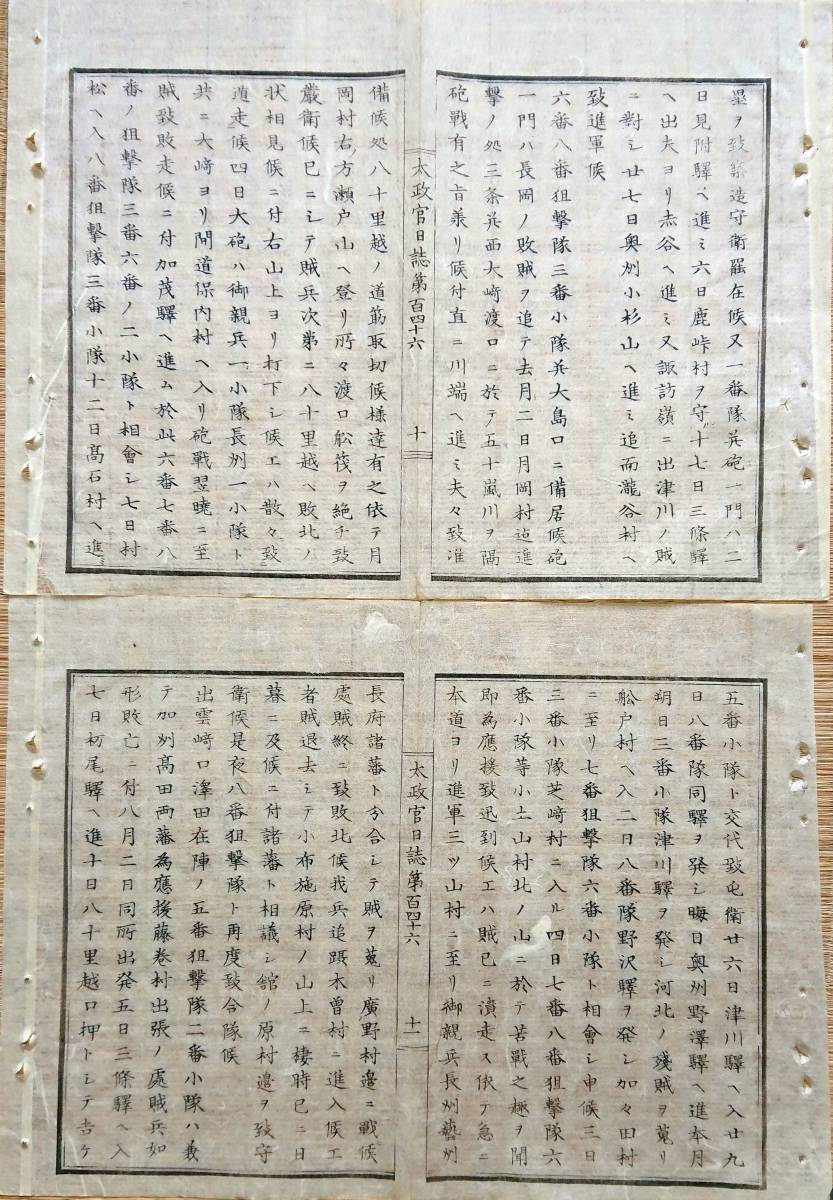 塁ヲ致築造守衛罷在候又一番隊并砲一門ハ二
日見附驛ヘ進ミ六日鹿峠村ヲ守十七日三條驛
ヘ出夫ヨリ赤谷ヘ進ミ又諏訪嶺ニ出津川ノ賊
ニ對シ廿七日奥州小杉山ヘ進ミ追而瀧谷村ヘ
致進軍候
六番八番狙撃隊三番小隊并大島口ニ備居候砲
一門ハ長岡ノ敗賊ヲ追テ去月二日月岡村迠進
撃ノ処三条并西大崎渡口ニ於テ五十嵐川ヲ隔
砲戰有之旨承リ候付直ニ川端ヘ進ミ夫々致准
太政官日誌第百四十六
十
備候処八十里越ノ道筋取切候様達有之依テ月
岡村右方瀬戸山ヘ登リ所々渡口舩筏ヲ絶チ致
嚴衛候已ニシテ賊兵次第ニ八十里越ヘ敗北ノ
状相見候ニ付右山上ヨリ打下シ候エハ散々致
遁走候四日大砲ハ御親兵一小隊長州一小隊ト
共ニ大﨑ヨリ間道保内村ヘ入リ砲戰翌曉ニ至
賊致敗走候ニ付加茂驛ヘ進ム於此六番七番八
番ノ狙撃隊三番六番ノ二小隊ト相會シ七日村
松ヘ入八番狙撃隊三番小隊十二日髙石村ヘ進ミ
五番小隊ト交代致屯衛廿六日津川驛ヘ入廿九
日八番隊同驛ヲ発シ晦日奥州野澤驛ヘ進本月
朔日三番小隊津川驛ヲ発シ河北ノ殘賊ヲ蒐リ
舩戸村ヘ入二日八番隊野沢驛ヲ発シ加々田村
ニ至リ七番狙撃隊六番小隊ト相會シ申候三日
三番小隊芝﨑村ニ入ル四日七番八番狙撃隊六
番小隊等小土山村北ノ山ニ於テ苦戰之趣ヲ聞
即為應援致迅到候エハ賊已ニ潰走ス依テ急ニ
本道ヨリ進軍三ツ山村ニ至リ御親兵長州藝州
太政官日誌第百四十六
十一
長府諸藩ト分合シテ賊ヲ蒐リ廣野村邉ニ戰候
處賊終ニ致敗北候我兵追躡木曾村ニ進入候エ
者賊退去シテ小布施原村ノ山上ニ棲時已ニ日
暮ニ及候ニ付諸藩ト相議シ舘ノ原村邉ヲ致守
衛候是夜八番狙撃隊ト再度致合隊候
出雲﨑口澤田在陣ノ五番狙撃隊二番小隊ハ兼
テ加州髙田両藩為應援藤巻村出張ノ處賊兵如
形敗亡ニ付八月二日同所出発五日三條驛ヘ入
七日杤尾驛ヘ進十日八十里越口押トシテ吉ケ